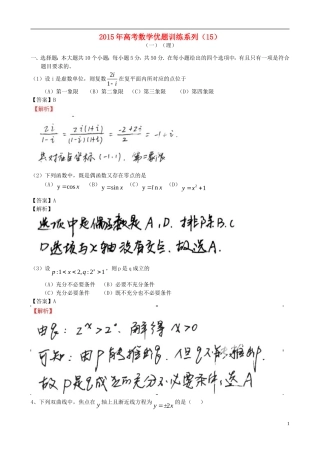 2015年高考数学优题训练系列（15）
（一）（理）
一、选择题，本大题共10个小题，每小题5分，共50分，在每小题给出的四个选项中，有且只有一项是符合题目要求的、
（1）设i是虚数单位，则复数 2i/1-i 在复平面内所对应的点位于
（A）第一象限 （B）第二象限 （C）第三象限 （D）第四象限
【答案】B
【解析】
2i/1-i = 2i(1+i)/(1-i)(1+i) = -2+2i/2 = -1+i
其对应点坐标(-1,1)，第二象限
（2）下列函数中，既是偶函数又存在零点的是
（A）y=cosx （B）y=sinx （C）y=lnx （D）y=x²+1
【答案】A
【解析】
选项中是偶函数是A、D，排除B、C
D选项与X轴没有交点，故选A
（3）设p:1<x<2,q:2ˣ>1，则p是q成立的
（A）充分不必要条件 （B）必要不充分条件
（C）充分必要条件 （D）既不充分也不必要条件
【答案】A
【解析】
由q：2ˣ>2⁰，解得x>0
可知：由p能推出q，但q不能推出p
故p是q成立的充分不必要条件，选A
4、下列双曲线中，焦点在y轴上且渐近线方程为y=±2x的是（ ）
1